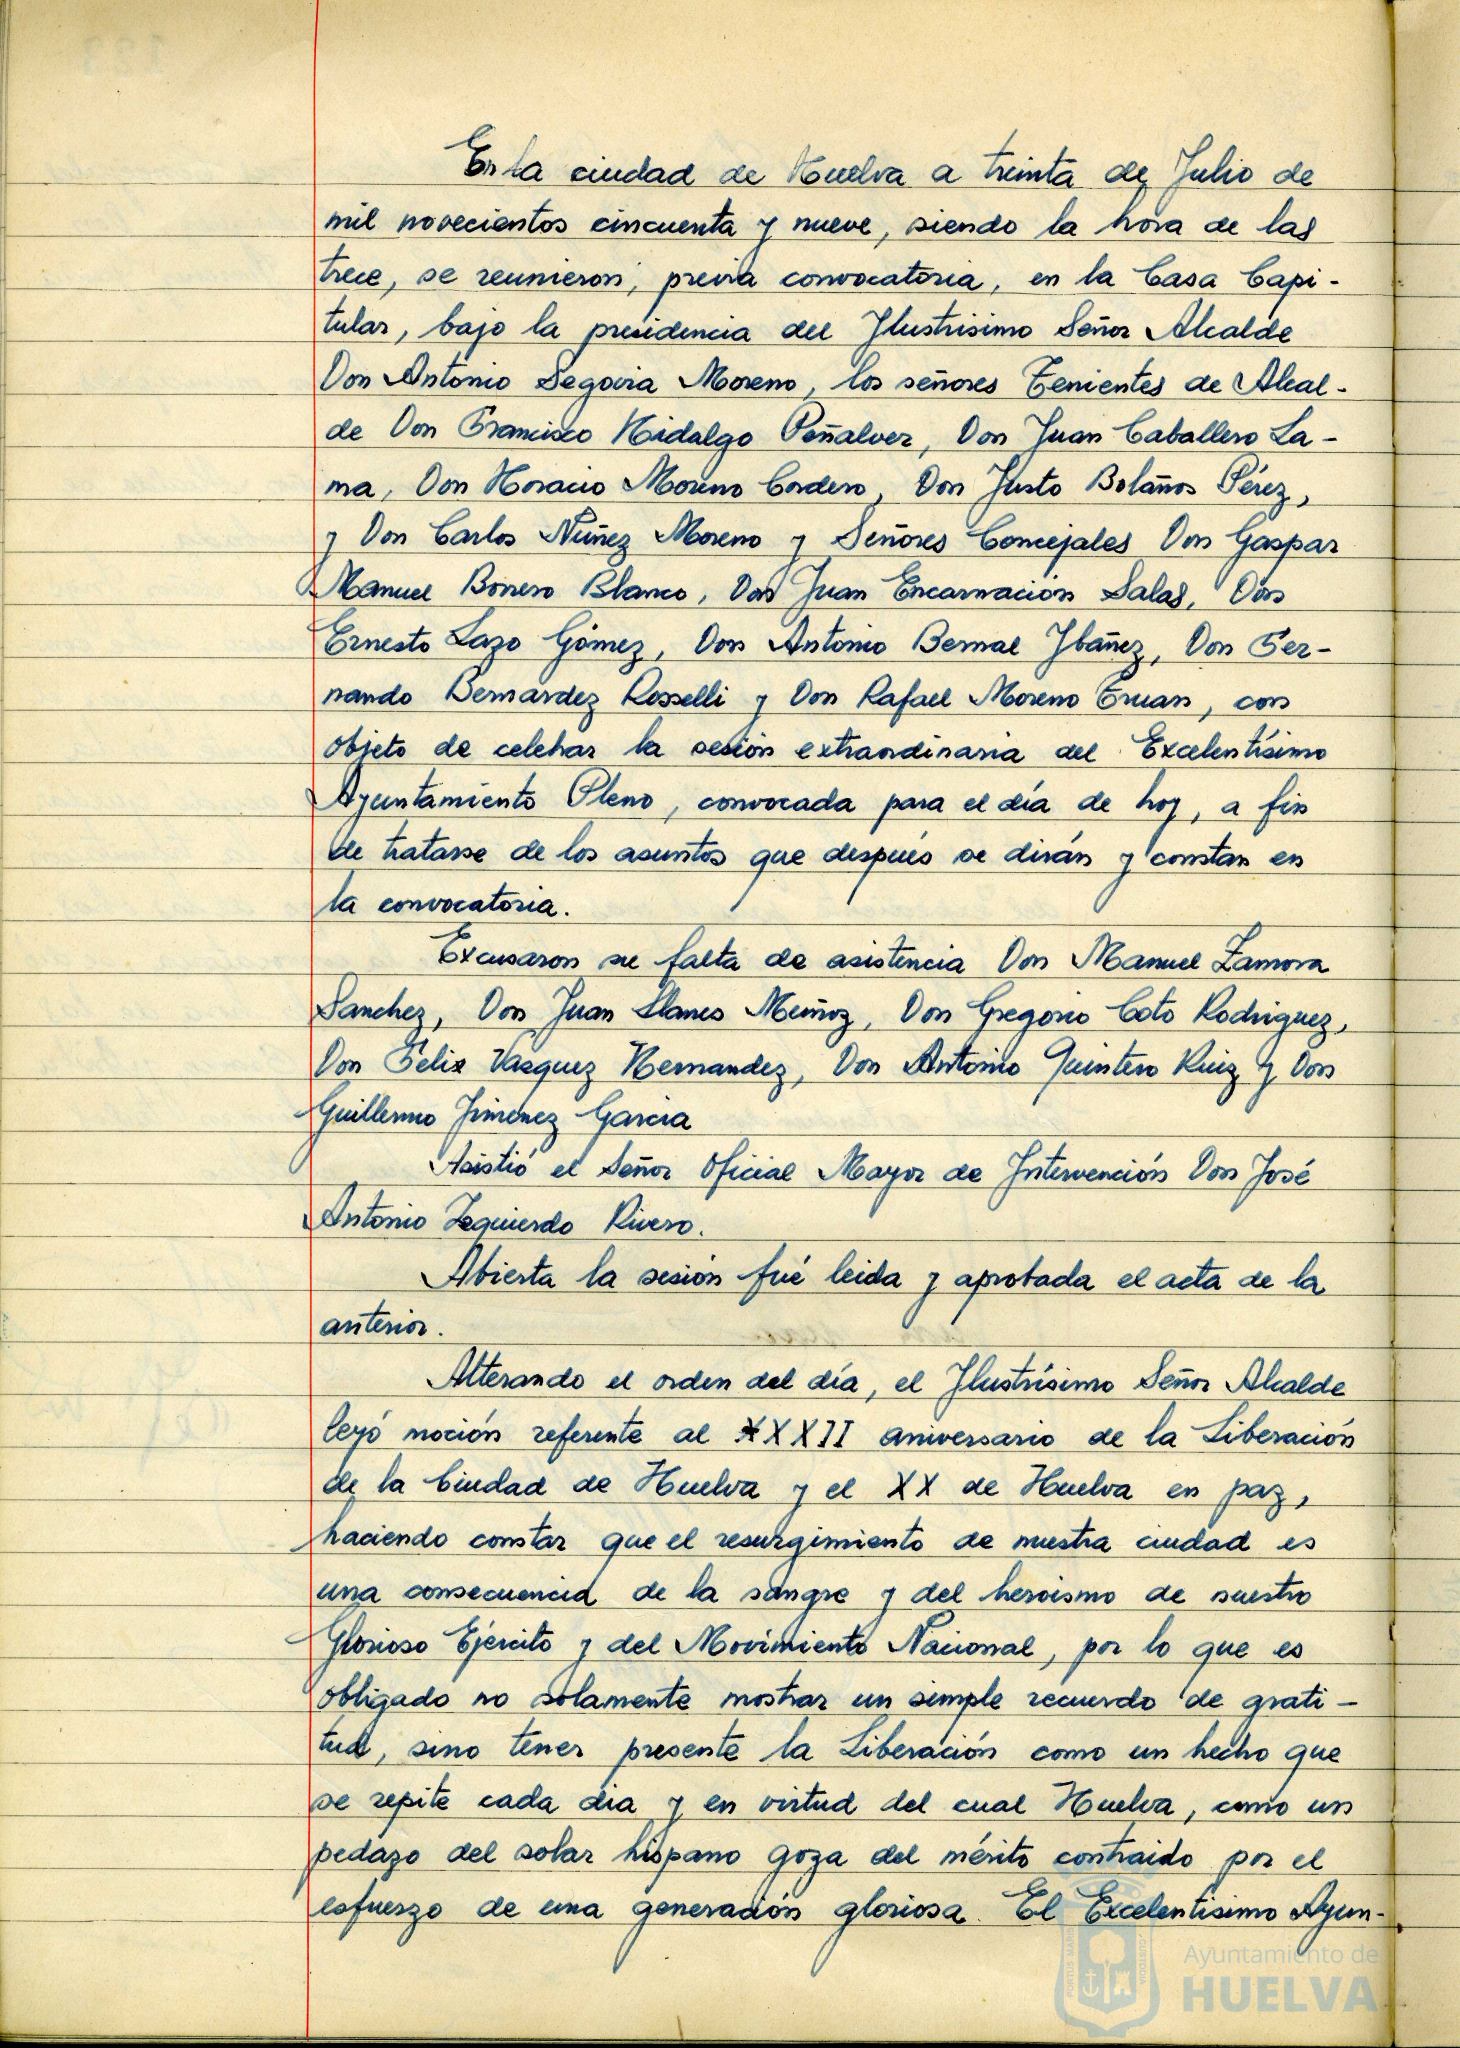 En la ciudad de Huelva a treinta de Julio de
mil novecientos cincuenta y nueve, siendo la hora de las
trece, se reunieron, previa convocatoria, en la Casa Capi-
tular, bajo la presidencia del Ilustrisimo Señor Alcalde
Don Antonio Segovia Moreno, los señores Tenientes de Alcal-
de Don Francisco Hidalgo Peñalver, Don Juan Caballero La-
ma, Don Horacio Moreno Cordero, Don Justo Bolaños Pérez,
y Don Carlos Núñez Moreno y Señores Concejales Don Gaspar
Manuel Borrero Blanco, Don Juan Encarnación Salas, Don
Ernesto Lazo Gómez, Don Antonio Bernal Ybañez, Don Fer-
nando Bernardez Rosselli y Don Rafael Moreno Eruan, con
objeto de celebrar la sesión extraordinaria del Excelentísimo
Ayuntamiento Pleno, convocada para el día de hoy, a fin
de tratarse de los asuntos que después se dirán y constan en
la convocatoria.
Excusaron su falta de asistencia Don Manuel Zamora
Sanchez, Don Juan Llanes Muñoz, Don Gregorio Coto Rodriguez,
Don Felix Vazquez Hernandez, Don Antonio Quintero Ruiz y Don
Guillermo Jimenez Garcia
Asistió el Señor Oficial Mayor de Intervención Don José
Antonio Izquierdo Rivero.
Abierta la sesión fué leida y aprobada el acta de la
anterior.
Alterando el orden del día, el Ilustrísimo Señor Alcalde
leyó moción referente al XXXII aniversario de la Liberación
de la Ciudad de Huelva y el XX de Huelva en paz,
haciendo constar que el resurgimiento de nuestra ciudad es
una consecuencia de la sangre y del heroismo de nuestro
Glorioso Ejército y del Movimiento Nacional, por lo que es
obligado no solamente mostrar un simple recuerdo de grati-
tud, sino tener presente la Liberación como un hecho que
se repite cada dia y en virtud del cual Huelva, como un
pedazo del solar hispano goza del mérito contraido por el
esfuerzo de una generación gloriosa. El Excelentisimo Ayun-
Ayuntamiento de
HUELVA